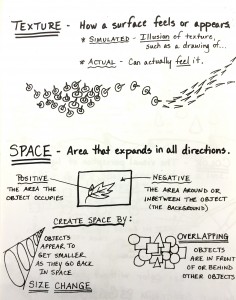 TEXTURE - How a surface feels or appears.
* SIMULATED - Illusion of texture,
such as a drawing of...
* ACTUAL - Can actually feel it.
SPACE - Area that expands in all directions.
POSITIVE
THE AREA THE
OBJECT OCCUPIES
NEGATIVE
THE AREA AROUND OR
INBETWEEN THE OBJECT
(THE BACKGROUND)
CREATE SPACE BY:
OBJECTS
APPEAR TO
GET SMALLER
AS THEY GO BACK
IN SPACE
SIZE CHANGE
OVERLAPPING
OBJECTS
ARE IN FRONT
OF OR BEHIND
OTHER OBJECTS